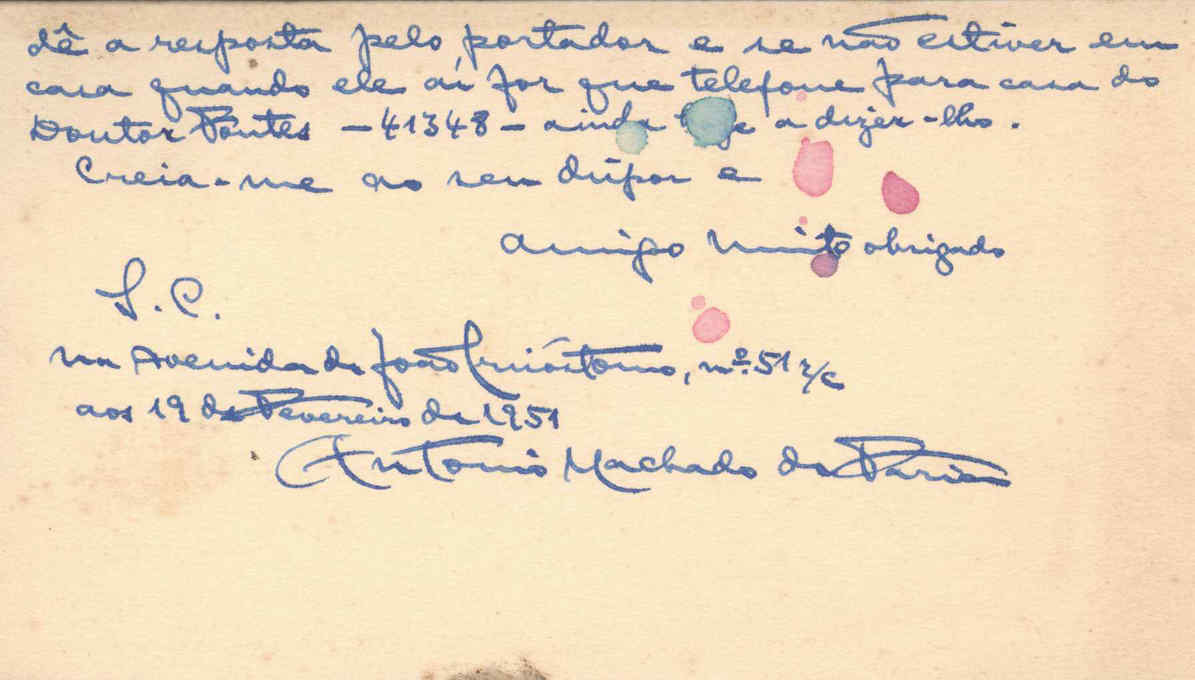 dê a resposta pelo portador e se não estiver em
casa quando ele aí for que telefone para casa do
Doutor Pontes – 41348 – ainda a dizer-lho.
Creia-me ao seu dispor e
amigo muito obrigado
S. C.
na Avenida de João Crisóstomo, nº. 51 r/c
aos 19 de Fevereiro de 1951
António Machado de Faria